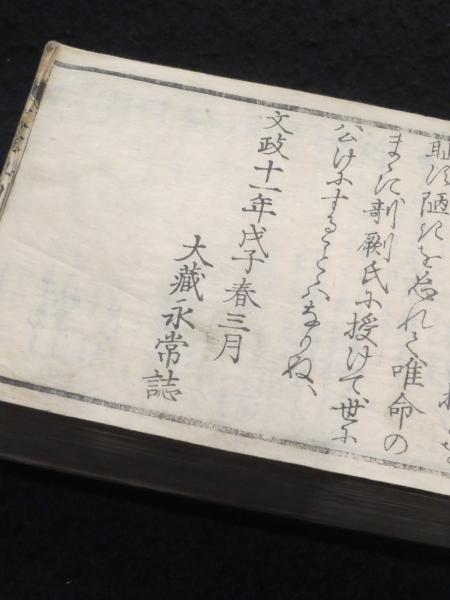 耻す陋きを忘れて唯命の
まゝに剞劂氏に授けて世に
公けにすることゝはなりぬ、
文政十一年戊子春三月
大藏永常誌